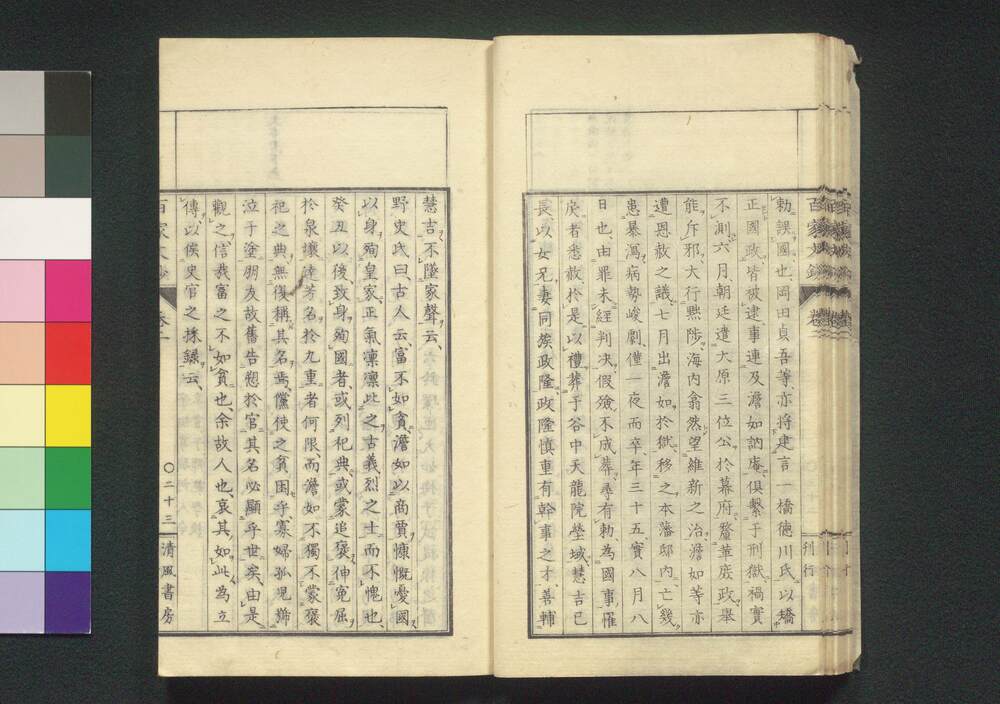 勅誤國也岡田貞吾等亦將建言一橋徳川氏以矯
正國政皆被逮事連及澹如訥庵倶繫于刑獄禍實
不測六月朝廷遣大原三位公於幕府釐革庶政舉
能斥邪大行黙陟海内翕然望維新之治澹如等亦
遭恩赦之議七月出澹如於獄移之本藩邸内亡幾
患暴瀉病勢峻劇僅一夜而卒年三十五實八月八
日也由罪未經判决假殮不成葬尋有勅為國事罹
戻者悉赦於是以禮葬于谷中天龍院塋域慧吉已
長以女兄妻同族政隆政隆慎重有幹事之才善輔
慧吉不墜家聲云
野史氏曰古人云富不如貧澹如以商賈慷慨憂國
以身殉皇家正氣凜凜此之古義烈之士而不愧也
癸丑以後致身殉國者或列祀典或蒙追褒伸冤屈
於泉壤達芳名於九重者何限而澹如不獨不蒙褒
祀之典無復稱其名焉儻使之貧困乎寡婦孤児號
泣于塗朋友故舊告愬於官其名必顯乎世矣由是
觀之信哉富之不如貧也余故人也哀其如此為立
傳以俟史官之採錄云
百家
〇二十三
清風書房
百家
刊行